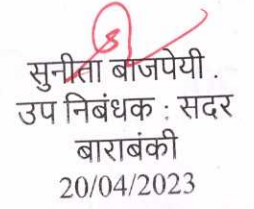 सुनीता बाजपेयी .
उप निबंधक : सदर
बाराबंकी
20/04/2023